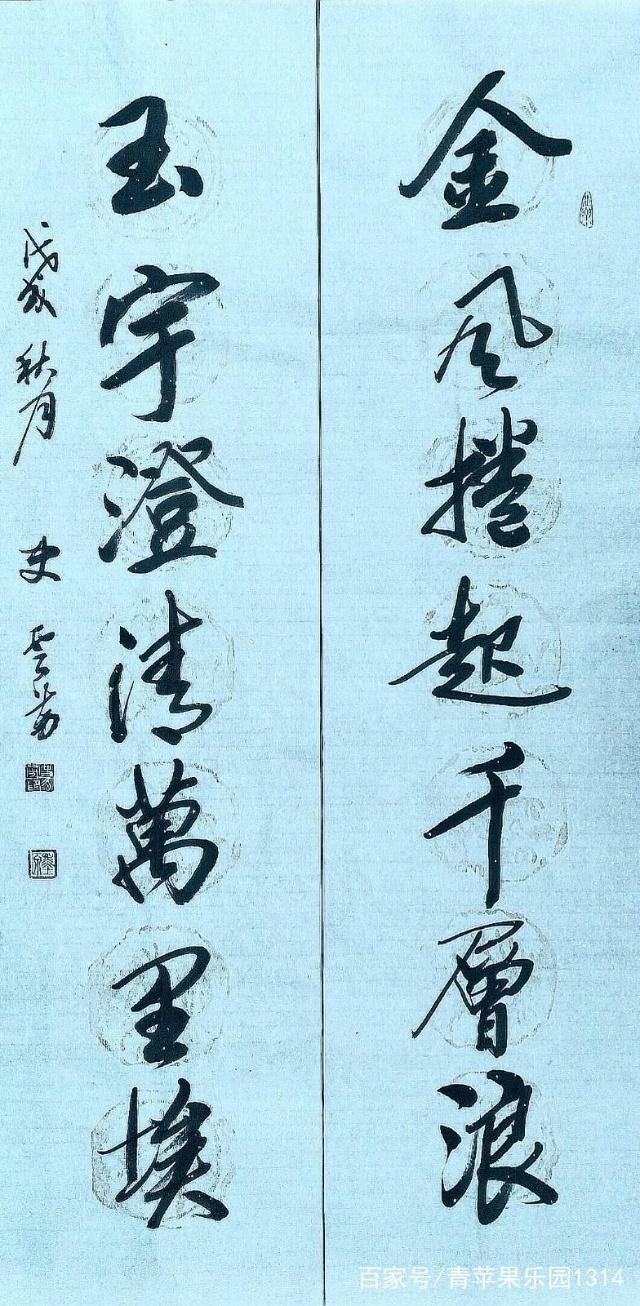 金風捲起千層浪
玉宇澄清萬里埃
戊戌 秋月
史雲
百家号/青苹果乐园1314